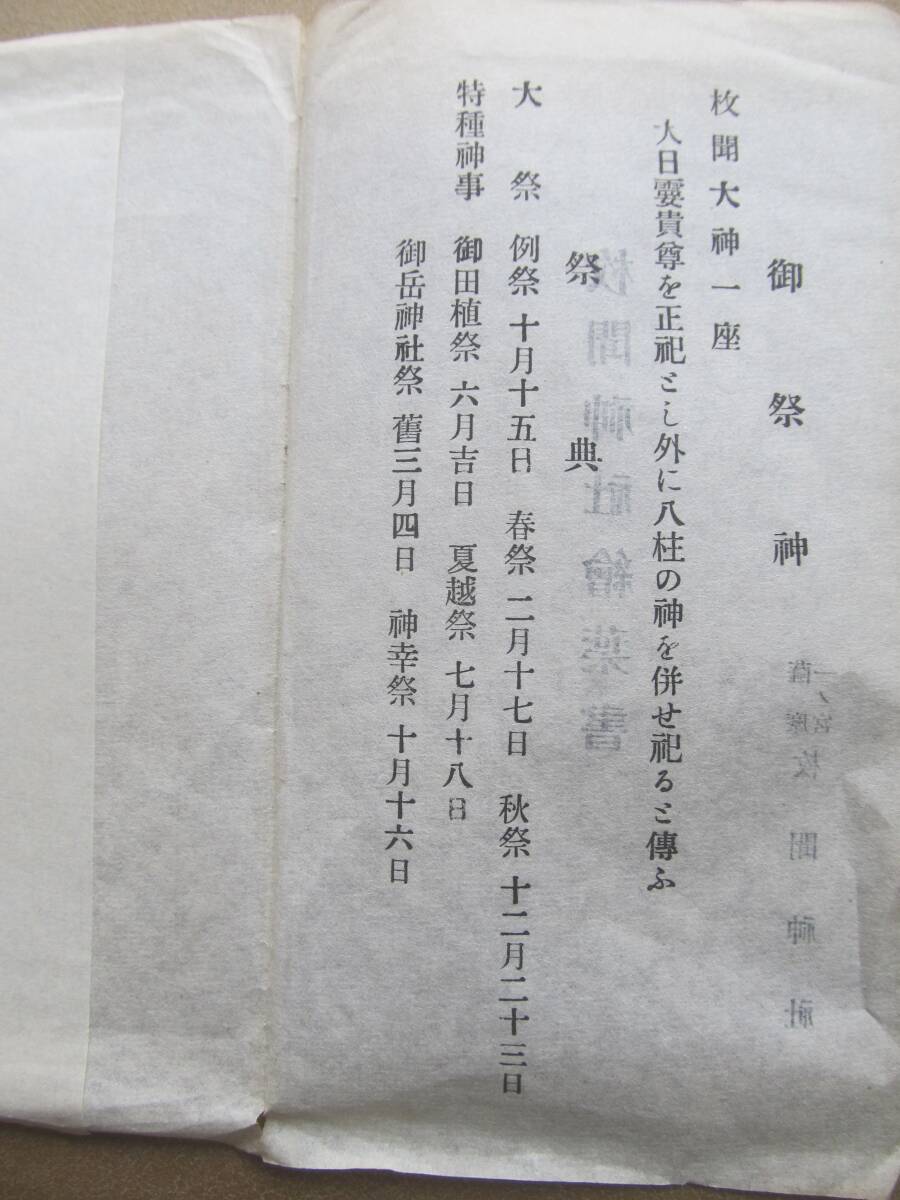 御祭神
枚聞大神一座
大日孁貴尊を正祀とし外に八柱の神を併せ祀ると傳ふ
祭典
大祭 例祭 十月十五日 春祭 二月十七日 秋祭 十二月二十三日
特種神事 御田植祭 六月吉日 夏越祭 七月十八日
御岳神社祭 舊三月四日 神幸祭 十月十六日
一ノ宮
薩摩 枚聞神社
枚聞神社繪葉書